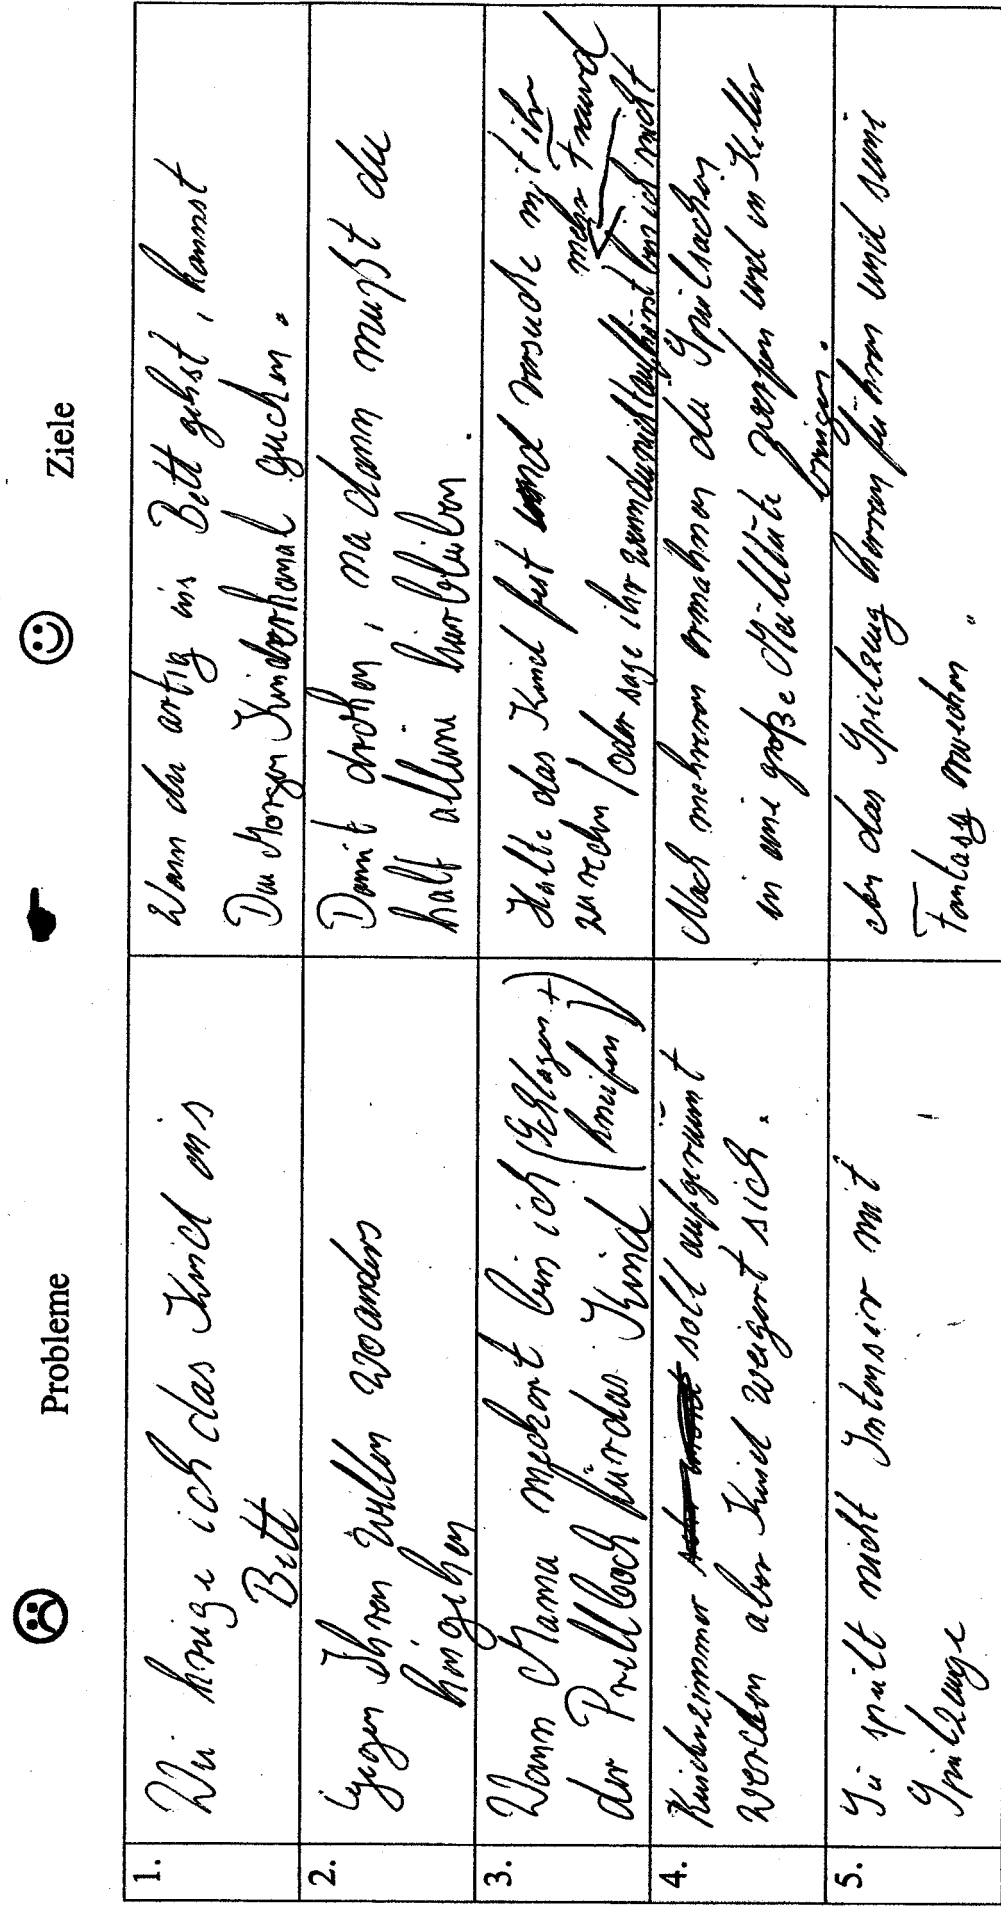 Probleme
Ziele
1.
Wie kriege ich das Kind ins
Bett
Wenn du artig ins Bett gehst, kannst
Du Morgen Kinderkanal gucken.
2.
Gegen Ihren Willen woanders
hingehen
Damit drohen, na dann mußt du
halt alleine hierbleiben.
3.
Wenn Mama meckert bin ich (Schlagen +
der Prellbock für das Kind kneifen)
Halte das Kind fest und versuche mit ihr
zu reden (oder sage ihr wenn du nicht aufhörst bin ich nicht
mehr Freund
4.
Kinderzimmer soll aufgeräumt
werden aber Kind weigert sich.
Nach mehreren ermahnen die Spielsachen
in eine große Mülltüte werfen und in Keller
bringen.
5.
Sie spielt nicht Intensiv mit
Spielzeuge
an das Spielzeug herran führen und seine
Fantasy